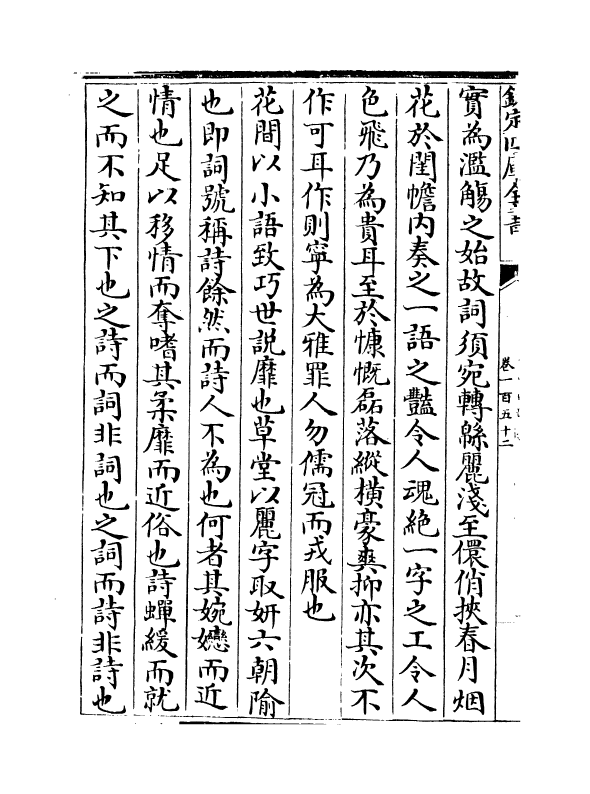 欽定四庫全書
卷一百五十二
實為濫觴之始故詞須宛轉緜麗淺至儇俏挾春月烟
花於閨幨内奏之一語之豔令人魂絶一字之工令人
色飛乃為貴耳至於慷慨磊落縱横豪爽抑亦其次不
作可耳作則寧為大雅罪人勿儒冠而戎服也
花間以小語致巧世説靡也草堂以麗字取妍六朝隃
也即詞號稱詩餘然而詩人不為也何者其婉孌而近
情也足以移情而奪嗜其柔靡而近俗也詩蟬緩而就
之而不知其下也之詩而詞非詞也之詞而詩非詩也